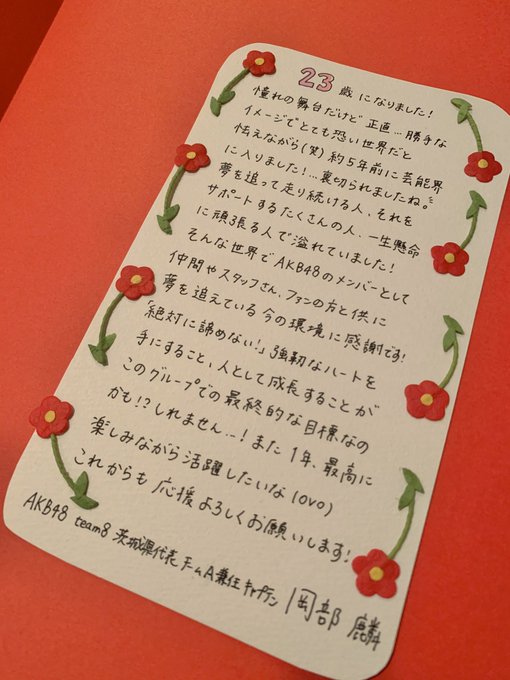 23歳になりました！
憧れの舞台だけど 正直…勝手な
イメージでとても恐い世界だと
怯えながら(笑) 約5年前に芸能界
に入りました！…裏切られましたね。
夢を追って走り続ける人、それを
サポートするたくさんの人、一生懸命
に頑張る人で溢れていました！
そんな世界でAKB48のメンバーとして
仲間やスタッフさん、ファンの方と供に
夢を追えている今の環境に感謝です！
「絶対に諦めない！」強靭なハートを
手にすること、人として成長することが
このグループでの最終的な目標なの
かも!?しれません…！また1年、最高に
楽しみながら活躍したいな(ovo)
これからも応援よろしくお願いします！
AKB48 team8 茨城県代表 チームA兼任 キャプテン 岡部 麟